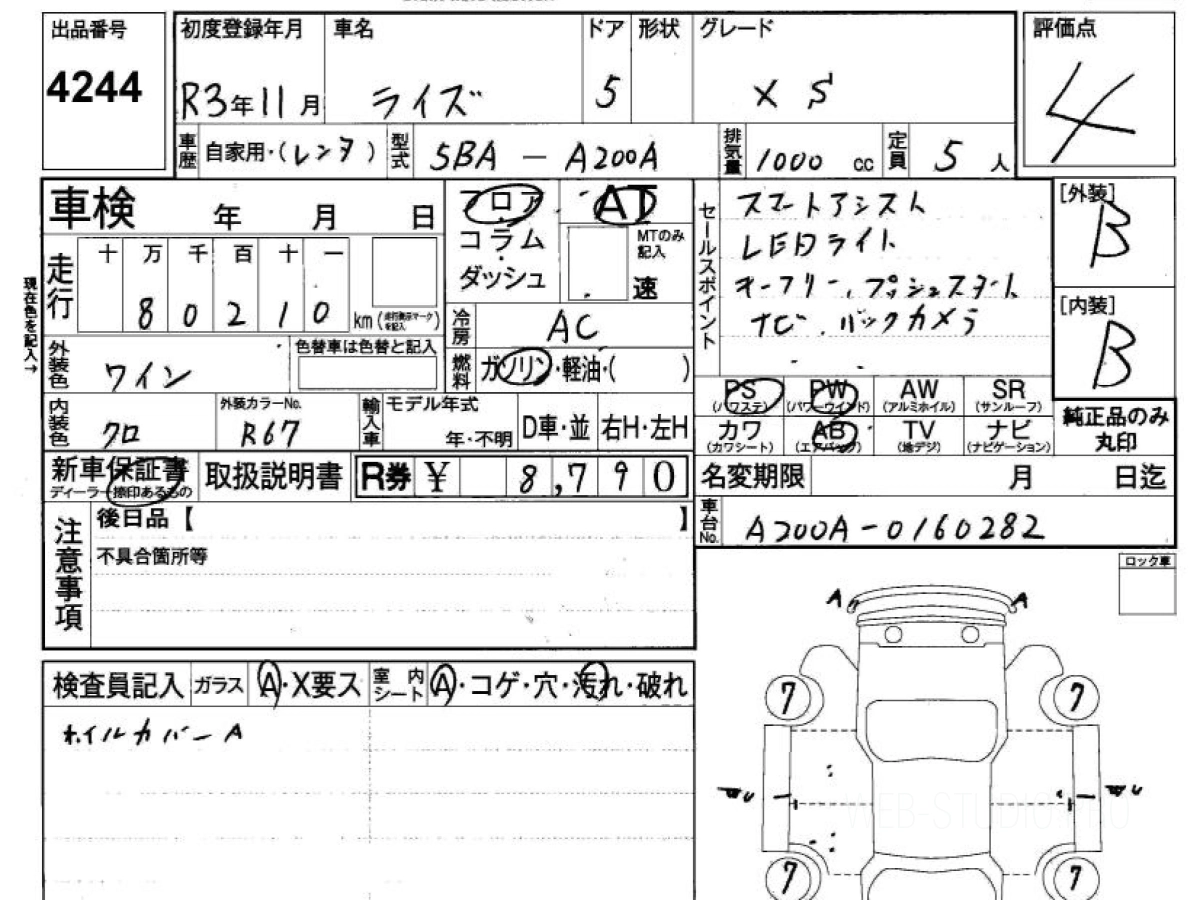 出品番号
4244
初度登録年月 車名 ドア 形状 グレード
R3年11月 ライズ 5 X S
評価点
4
車歴 自家用・(レンタ) 型式 5BA-A200A 排気量 1000 cc 定員 5人
車検 年 月 日
フロア
コラム
ダッシュ
AT
MTのみ記入
速
セールスポイント
スマートアシスト
LEDライト
キーフリー、プッシュスタート
ナビ、バックカメラ
[外装]
B
[内装]
B
現在色を記入→
走行
十 万 千 百 十 一
8 0 2 1 0 km(走行表示マークを記入)
冷房 AC
燃料 ガソリン・軽油・( )
外装色 ワイン
色替車は色替と記入
内装色 クロ
外装カラーNo.
R67
輸入車 モデル年式
年・不明
D車・並 右H・左H
PS PW AW SR
(パワステ) (パワーウインド) (アルミホイル) (サンルーフ)
カワ AB TV ナビ
(カワシート) (エアバック) (地デジ) (ナビゲーション)
純正品のみ
丸印
新車保証書
ディーラー捺印あるもの
取扱説明書
R券 ¥ 8,790
名変期限 月 日迄
車台No. A200A-0160282
注意事項
後日品【 】
不具合箇所等
ロック車
検査員記入 ガラス A・X要ス 室内シート A・コゲ・穴・汚れ・破れ
ホイルカバーA
A A
7 7
U U
7 7
WEB-STUDIO.PRO